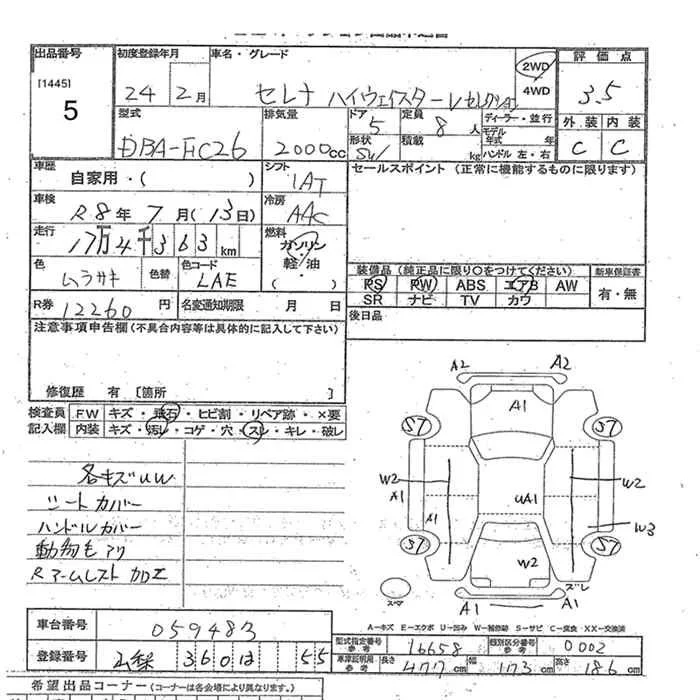 出品番号 初度登録年月 車名・グレード 評価点
[1445]
5
24 2月 セレナ ハイウェイスターVセレクション 2WD 4WD 3.5
型式 排気量 ドア 定員 ディーラー・並行 外装 内装
DBA-FC26 2000cc 5 8人 モデル年式 年 C C
形状 積載 kg ハンドル 左・右
車歴 シフト セールスポイント(正常に機能するものに限ります)
自家用・( ) IAT
車検 冷房
R8年7月(13日) AAC
走行 燃料
17万4千363km ガソリン
軽・油
( )
色 色替 色コード 装備品(純正品に限り○をつけてください) 新車保証書
ムラサキ LAE PS PW ABS エアB AW 有・無
SR ナビ TV カワ
R券 12260円 名変通知期限 月 日 後日品
注意事項申告欄(不具合内容等は具体的に記入して下さい)
修復歴 有 [箇所 ]
検査員 FW キズ・飛石・ヒビ割・リペア跡・×要
記入欄 内装 キズ・汚レ・コゲ・穴・スレ・キレ・破レ
各キズUW
シートカバー
ハンドルカバー
動物毛アリ
Rアームレスト カロエ
A2 A2
A1
S7 S7
W2 W2
A1 UA1 A1
A1 W3
S7 S7
W2
スレ
スマ A1 A1
A-キズ E-エクボ U-凹み W-補修跡 S-サビ C-腐食 XX-交換済
車台番号 059483
型式指定番号 参考 16658 類別区分番号 参考 0002
登録番号 360 は 55
車庫証明用 参考 長さ 477cm 幅 173cm 高さ 186cm
希望出品コーナー(コーナーは各会場により異なります。)